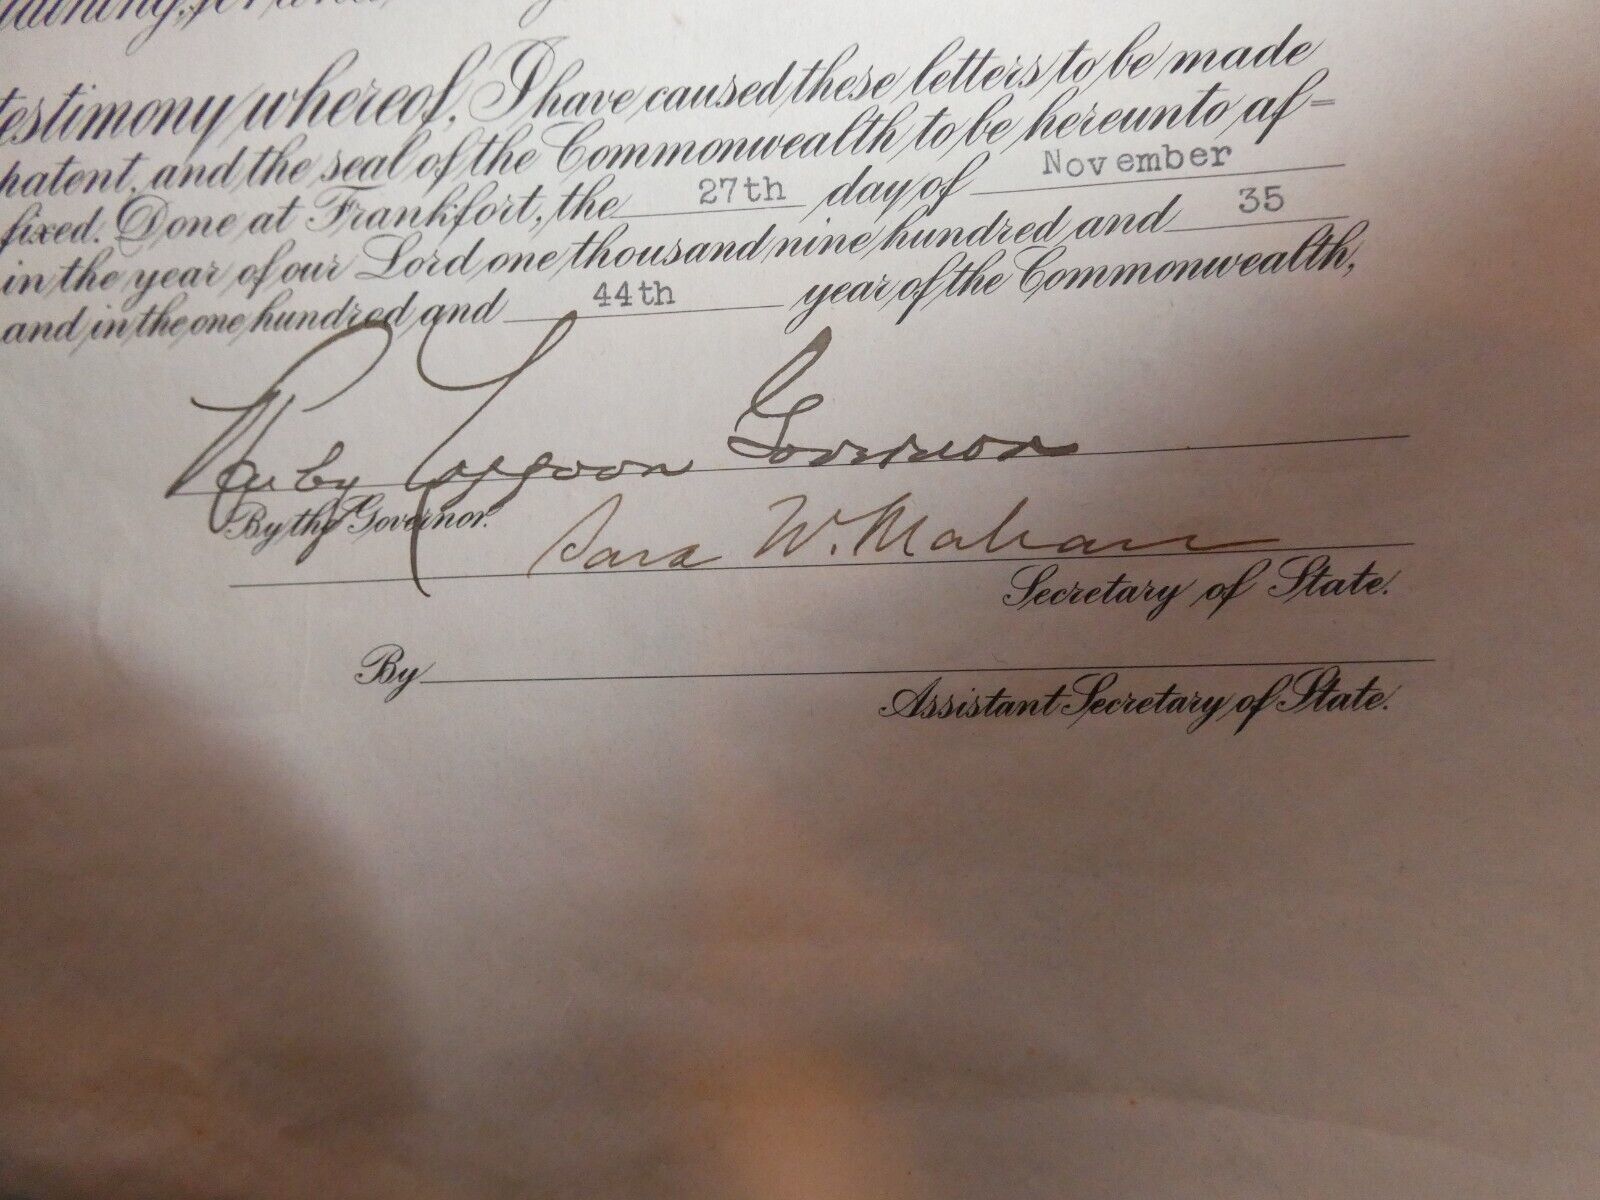 testimony whereof, I have caused these letters to be made
patent, and the seal of the Commonwealth to be hereunto af=
fixed. Done at Frankfort, the 27th day of November
in the year of our Lord one thousand nine hundred and 35
and in the one hundred and 44th year of the Commonwealth,
Ruby Laffoon Governor
By the Governor.
Sara W. Mahan
Secretary of State.
By
Assistant Secretary of State.